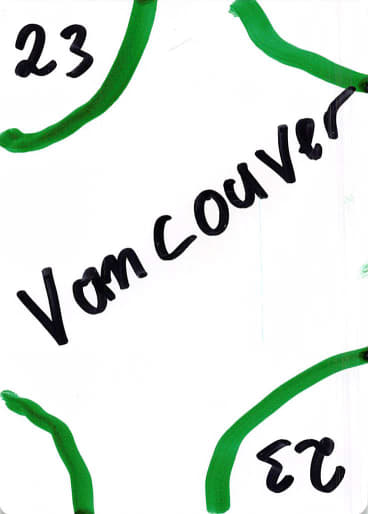 23
Vancouver
23